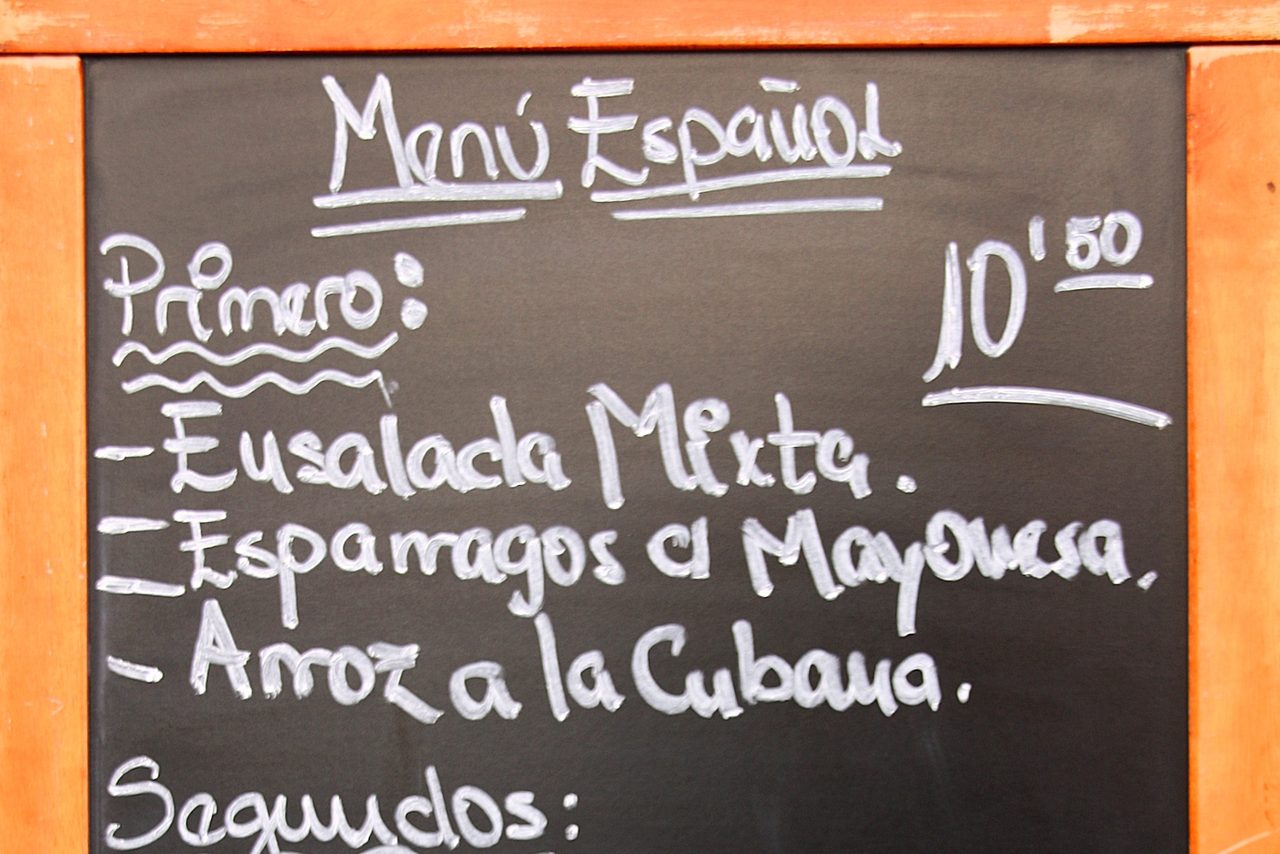 Menú Español
Primero:
10'50
- Ensalada Mixta.
- Esparragos a Mayonesa.
- Arroz a la Cubana.
Segundos: